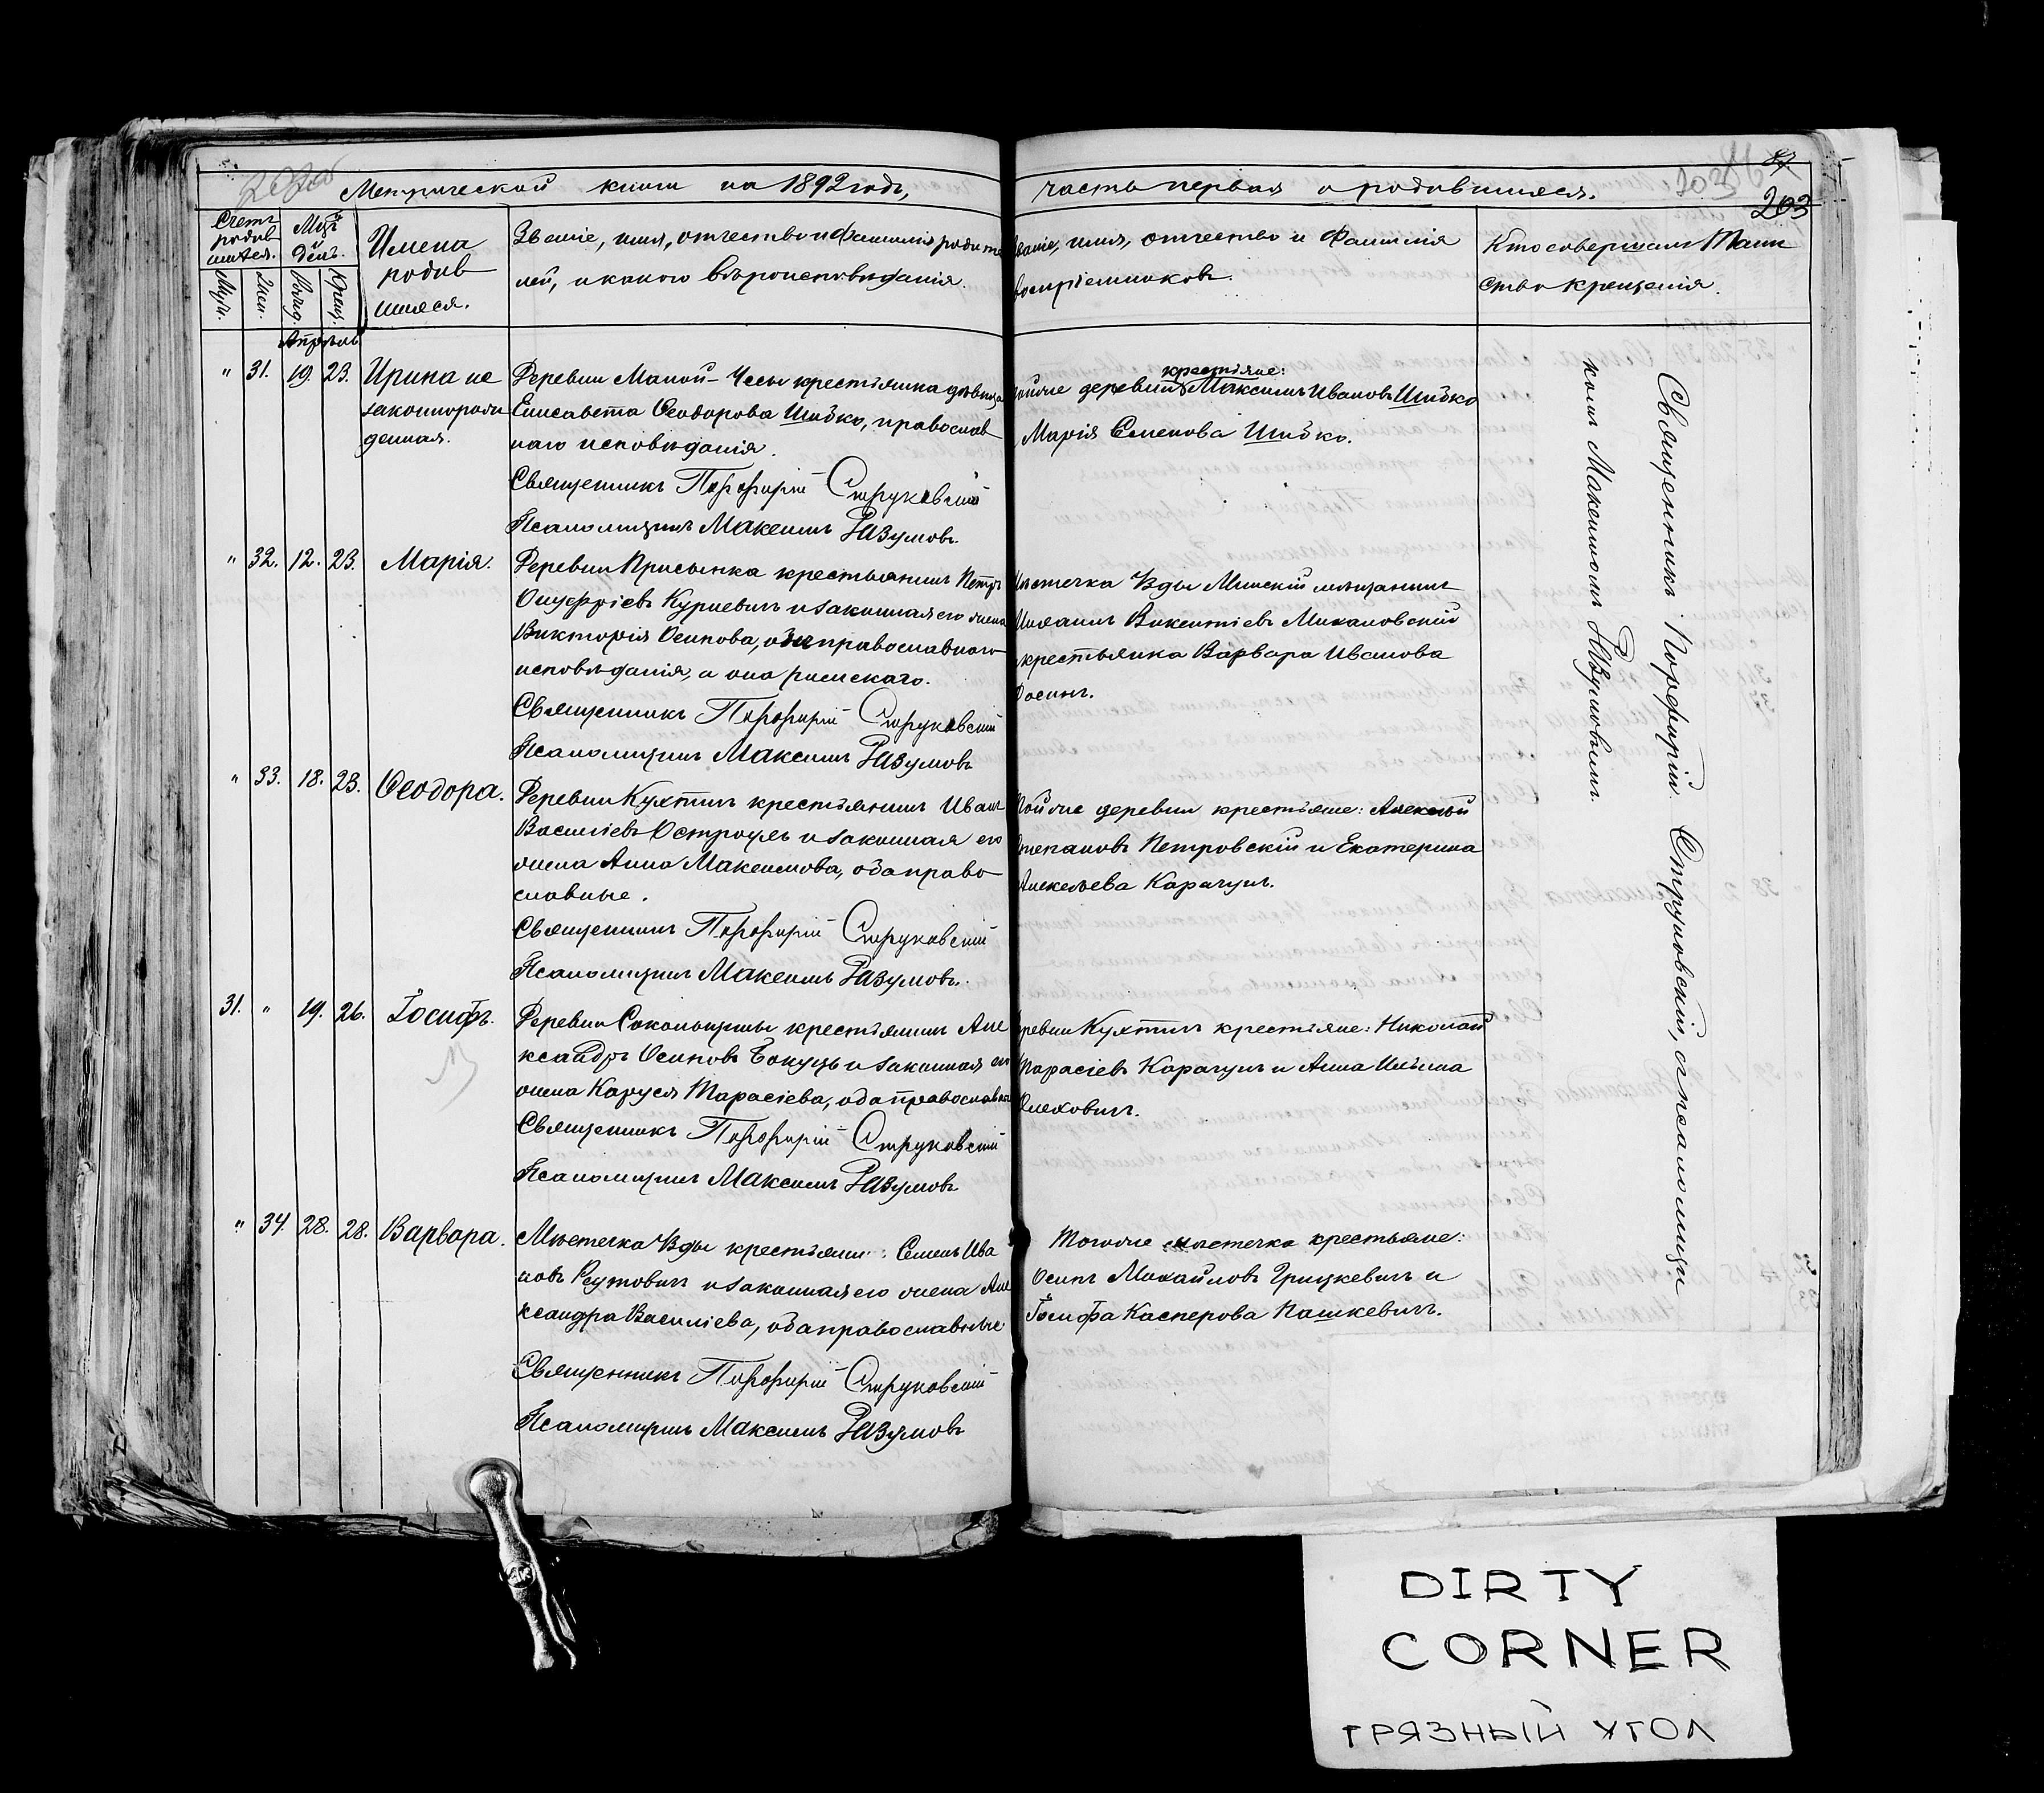 Метрической книги на 1892 годъ,
часть первая о родившихся.
203
Счетъ родив шихся.
Мцъ День.
Имена родив шихся.
Званіе, имя, отчество и фамилія родите
лей, и какого вѣроисповѣданія.
Званіе, имя, отчество и фамилія
воспріемниковъ.
Кто совершалъ Таин
ство крещенія.
Муж. Жен. Рожд. Крещ.
Апрѣль
" 31. 19. 23. Ирина не
законнорож
денная.
Деревни Малой-Чесы крестьянка дѣвица
Елисавета Ѳеодорова Шибко, православ
наго исповѣданія.
Священникъ Порфирій Струковскій
Псаломщикъ Максимъ Разумовъ.
крестьяне:
тойже деревни Максимъ Ивановъ Шибко
Марія Семенова Шибко.
" 32. 12. 23. Марія.
Деревни Присынка крестьянинъ Петръ
Онуфріевъ Курневичъ и законная его жена
Викторія Осипова, онъ православнаго
исповѣданія, а она римскаго.
Священникъ Порфирій Струковскій
Псаломщикъ Максимъ Разумовъ
Мѣстечка Узды Минскій мѣщанинъ
Михаилъ Викентіевъ Михаловскій
крестьянка Варвара Иванова
" 33. 18. 23. Ѳеодора.
Деревни Кухтичъ крестьянинъ Иванъ
Василіевъ Остроухъ и законная его
жена Анна Максимова, оба право
славные.
Священникъ Порфирій Струковскій
Псаломщикъ Максимъ Разумовъ.
Тойже деревни крестьяне: Алексѣй
Степановъ Петровскій и Екатерина
Алексѣева Карачунъ.
31. " 19. 26. Іосифъ.
Деревни Сокольщины крестьянинъ Але
ксандръ Осиповъ Бокуць и законная его
жена Каруся Тарасіева, оба православные
Священникъ Порфирій Струковскій
Псаломщикъ Максимъ Разумовъ
деревни Кухтичъ крестьяне: Николай
Тарасіевъ Карачунъ и Анна Ильина
Олеховичъ.
" 34. 28. 28. Варвара.
Мѣстечка Узды крестьянинъ: Семенъ Ива
новъ Реутовичъ и законная его жена Але
ксандра Василіева, оба православные
Священникъ Порфирій Струковскій
Псаломщикъ Максимъ Разумовъ
Тогоже мѣстечка крестьяне:
Осипъ Михайловъ Грицкевичъ и
Іосифа Касперова Пашкевичъ.
Священникъ Порфирій Струковскій, съ псаломщи
комъ Максимомъ Разумовымъ.
DIRTY
CORNER
ГРЯЗНЫЙ УГОЛ